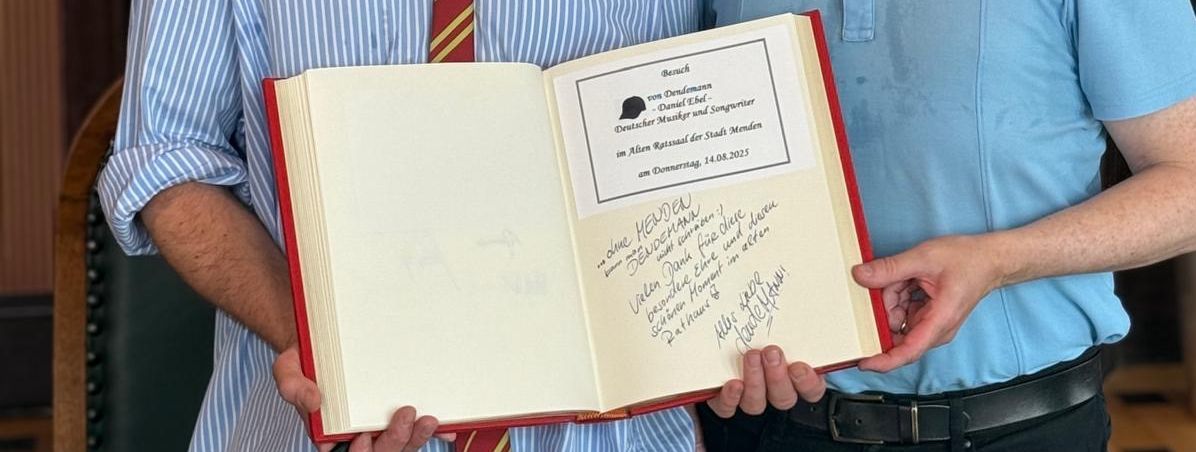 Besuch
von Dendemann
- Daniel Ebel -
Deutscher Musiker und Songwriter
im Alten Ratssaal der Stadt Menden
am Donnerstag, 14.08.2025
...ohne MENDEN
kann man
DENDEMANN
nicht schreiben :)
Vielen Dank für diese
besondere Ehre und diesen
schönen Moment im alten
Rathaus
Alles Liebe